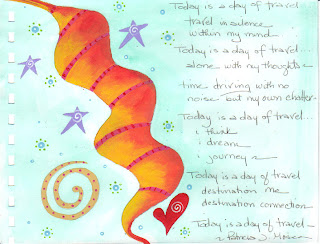 Today is a day of travel
travel in silence
within my mind
Today is a day of travel...
alone with my thoughts~
time driving with no
noise but my own chatter~
Today is a day of travel...
i think
i dream
i journey~
Today is a day of travel
destination me
destination connection
Today is a day of travel~
~ Patricia J.